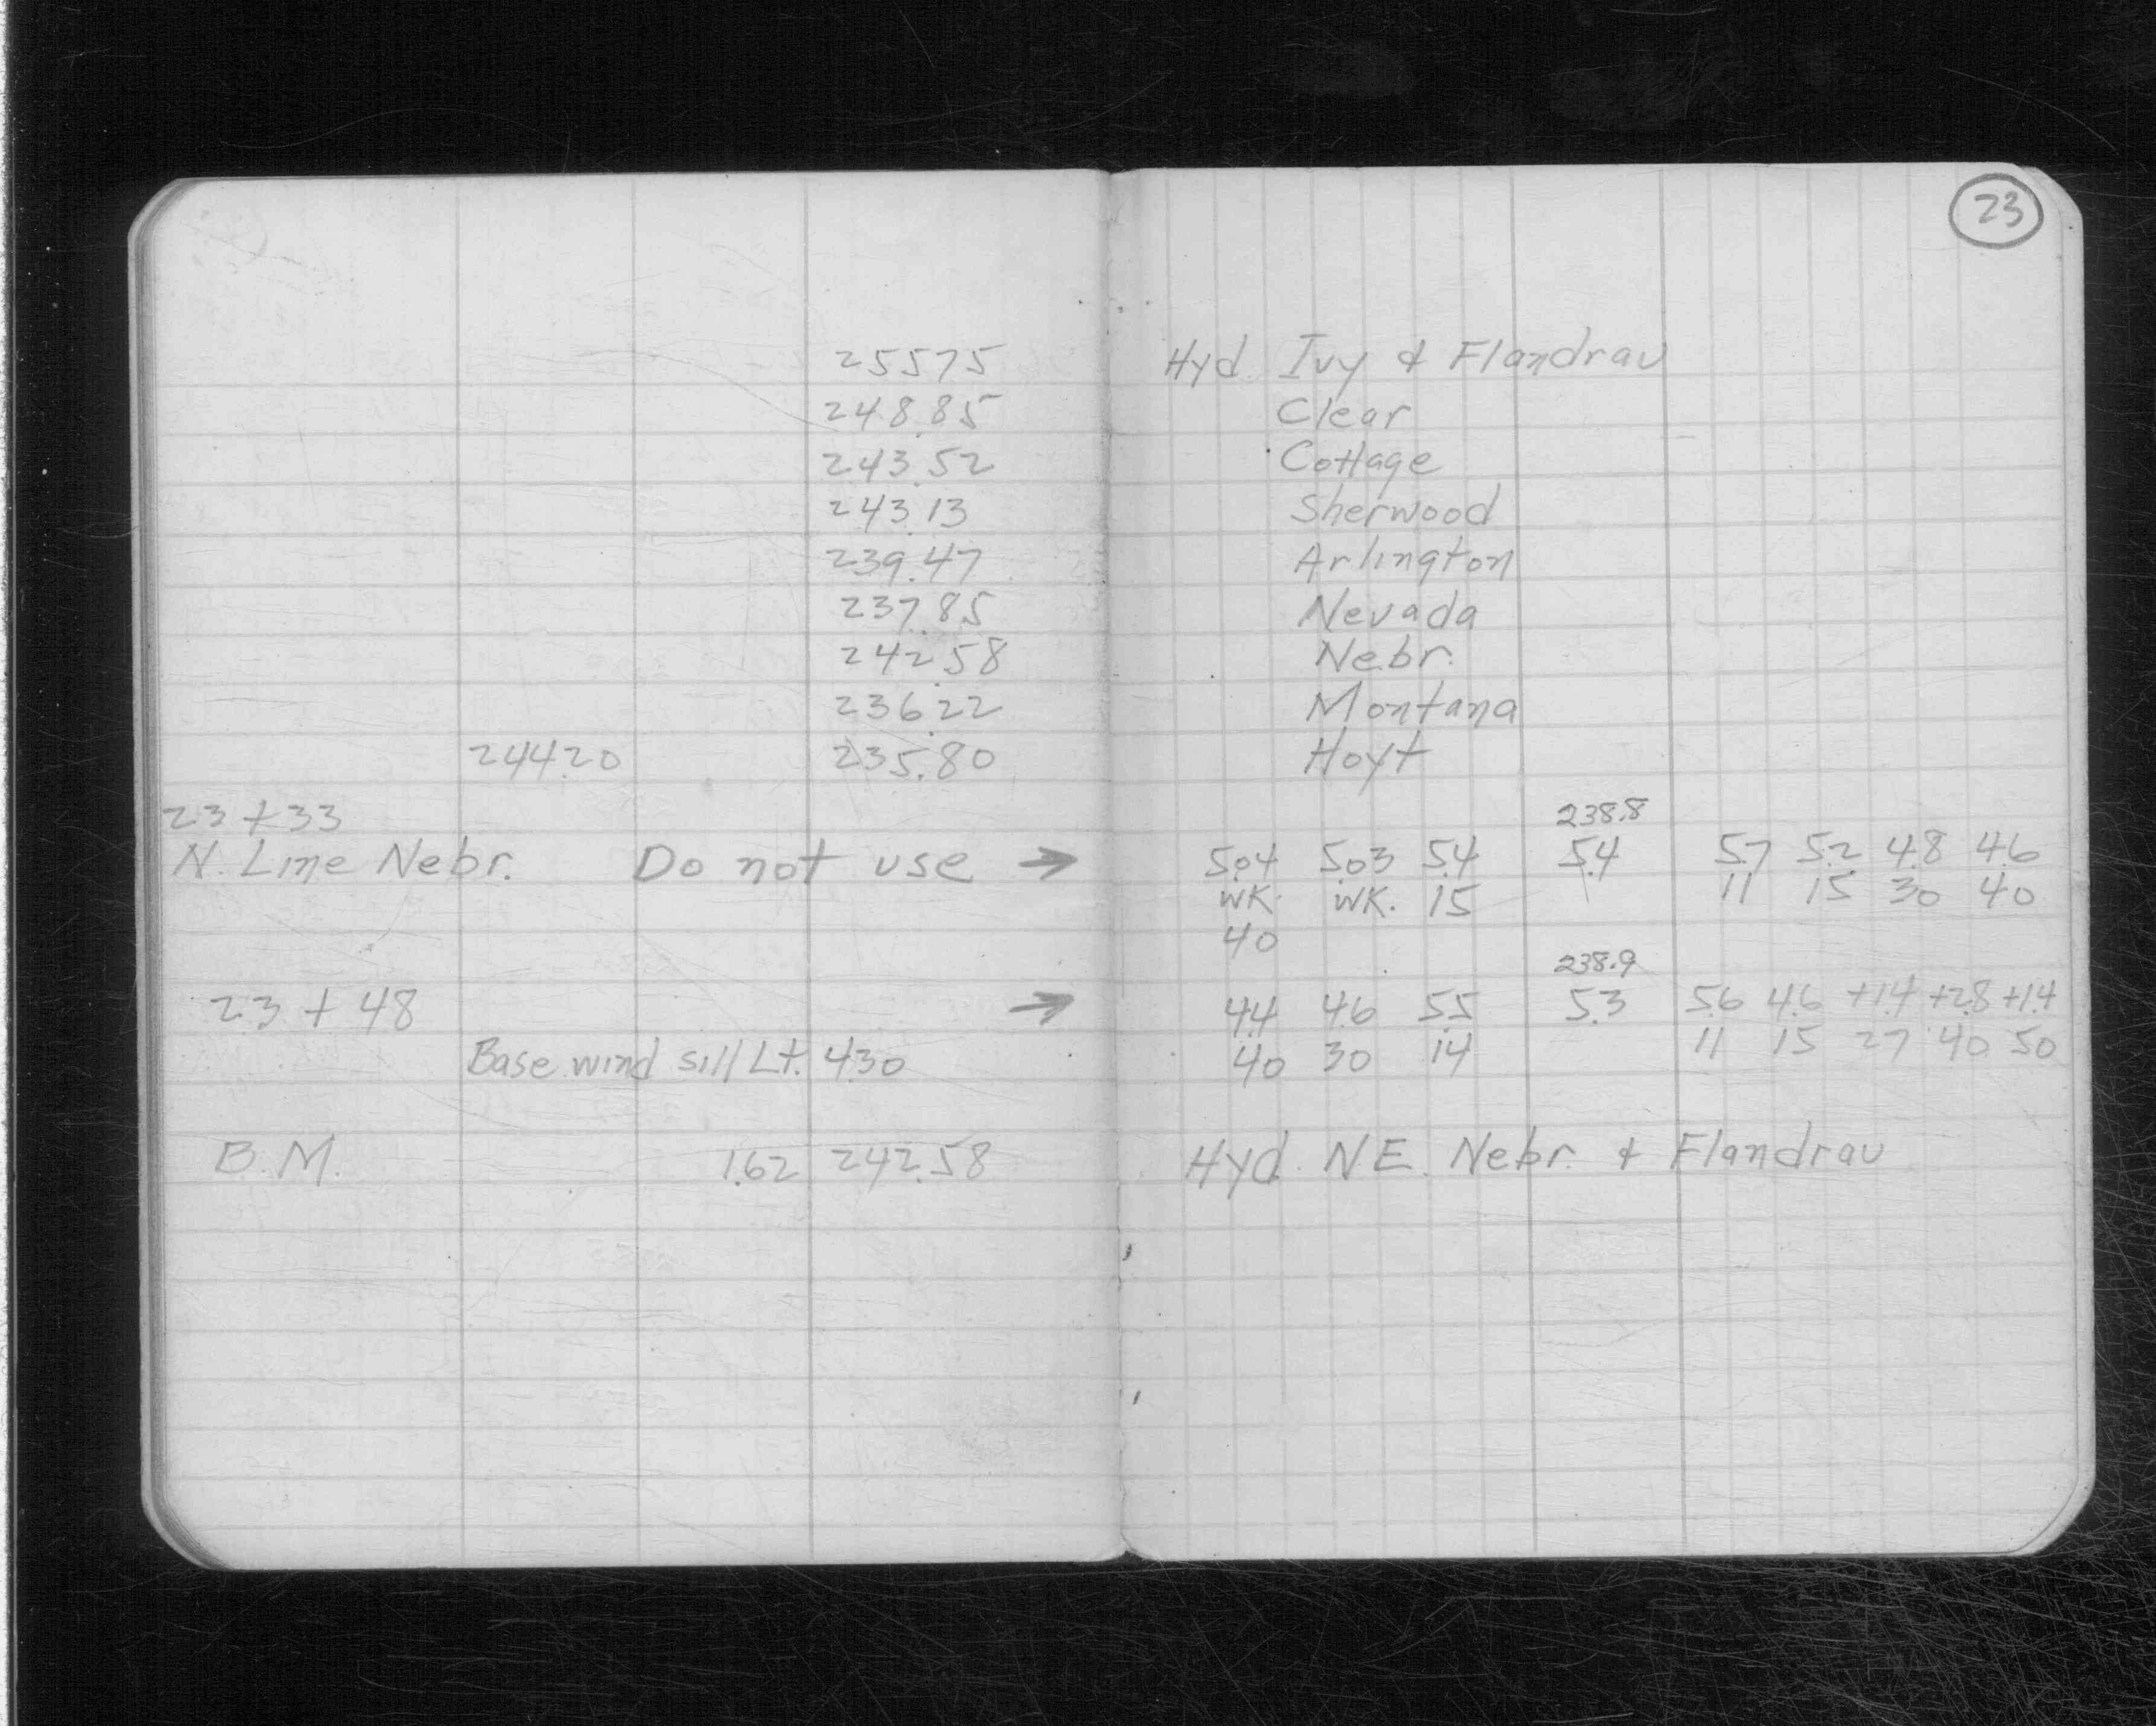 23
255.75 Hyd. Ivy & Flandrau
248.85 Clear
243.52 Cottage
243.13 Sherwood
239.47 Arlington
237.85 Nevada
242.58 Nebr.
236.22 Montana
244.20 235.80 Hoyt
23+33 238.8
N. Line Nebr. Do not use → 5.04 5.03 5.4 5.4 5.7 5.2 4.8 4.6
WK. WK. 15 11 15 30 40
40
238.9
23+48 → 4.4 4.6 5.5 5.3 5.6 4.6 +1.4 +2.8 +1.4
Base wind sill Lt. 4.30 40 30 14 11 15 27 40 50
B.M. 1.62 242.58 Hyd. NE. Nebr. & Flandrau